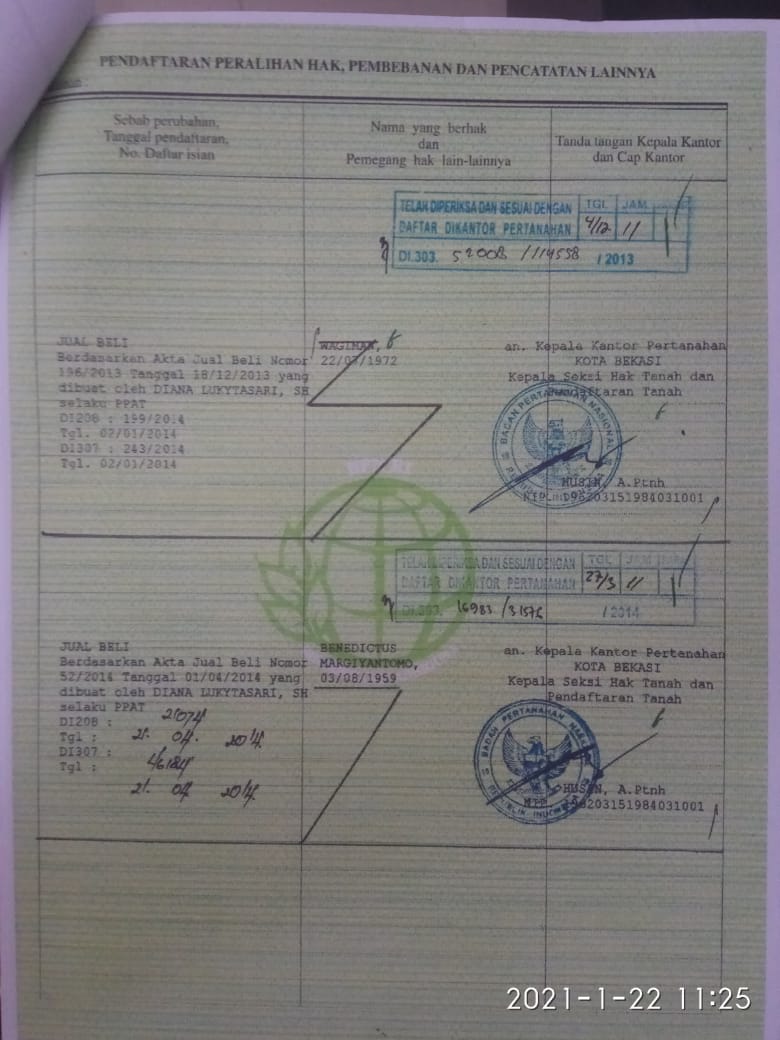 PENDAFTARAN PERALIHAN HAK, PEMBEBANAN DAN PENCATATAN LAINNYA
Sebab perubahan,
Tanggal pendaftaran,
No. Daftar isian
Nama yang berhak
dan
Pemegang hak lain-lainnya
Tanda tangan Kepala Kantor
dan Cap Kantor
TELAH DIPERIKSA DAN SESUAI DENGAN
DAFTAR DIKANTOR PERTANAHAN
TGL JAM
4/12 11
DI.303. 52008 /114558 / 2013
JUAL BELI
Berdasarkan Akta Jual Beli Nomor
196/2013 Tanggal 18/12/2013 yang
dibuat oleh DIANA LUKYTASARI, SH
selaku PPAT
DI208 : 199/2014
Tgl. 02/01/2014
DI307 : 243/2014
Tgl. 02/01/2014
WAGIMAN,
22/07/1972
an. Kepala Kantor Pertanahan
KOTA BEKASI
Kepala Seksi Hak Tanah dan
Pendaftaran Tanah
BADAN PERTANAHAN NASIONAL
REPUBLIK INDONESIA
HUSIN, A.Ptnh
NIP. 196203151984031001
TELAH DIPERIKSA DAN SESUAI DENGAN
DAFTAR DIKANTOR PERTANAHAN
TGL JAM
27/3 11
DI.303. 16983 /31576 / 2014
JUAL BELI
Berdasarkan Akta Jual Beli Nomor
52/2014 Tanggal 01/04/2014 yang
dibuat oleh DIANA LUKYTASARI, SH
selaku PPAT
DI208 :
Tgl : 21. 04. 2014
DI307 :
Tgl :
21. 04 2014
BENEDICTUS
MARGIYANTOMO,
03/08/1959
an. Kepala Kantor Pertanahan
KOTA BEKASI
Kepala Seksi Hak Tanah dan
Pendaftaran Tanah
BADAN PERTANAHAN NASIONAL
REPUBLIK INDONESIA
HUSIN, A.Ptnh
NIP. 196203151984031001
2021-1-22 11:25